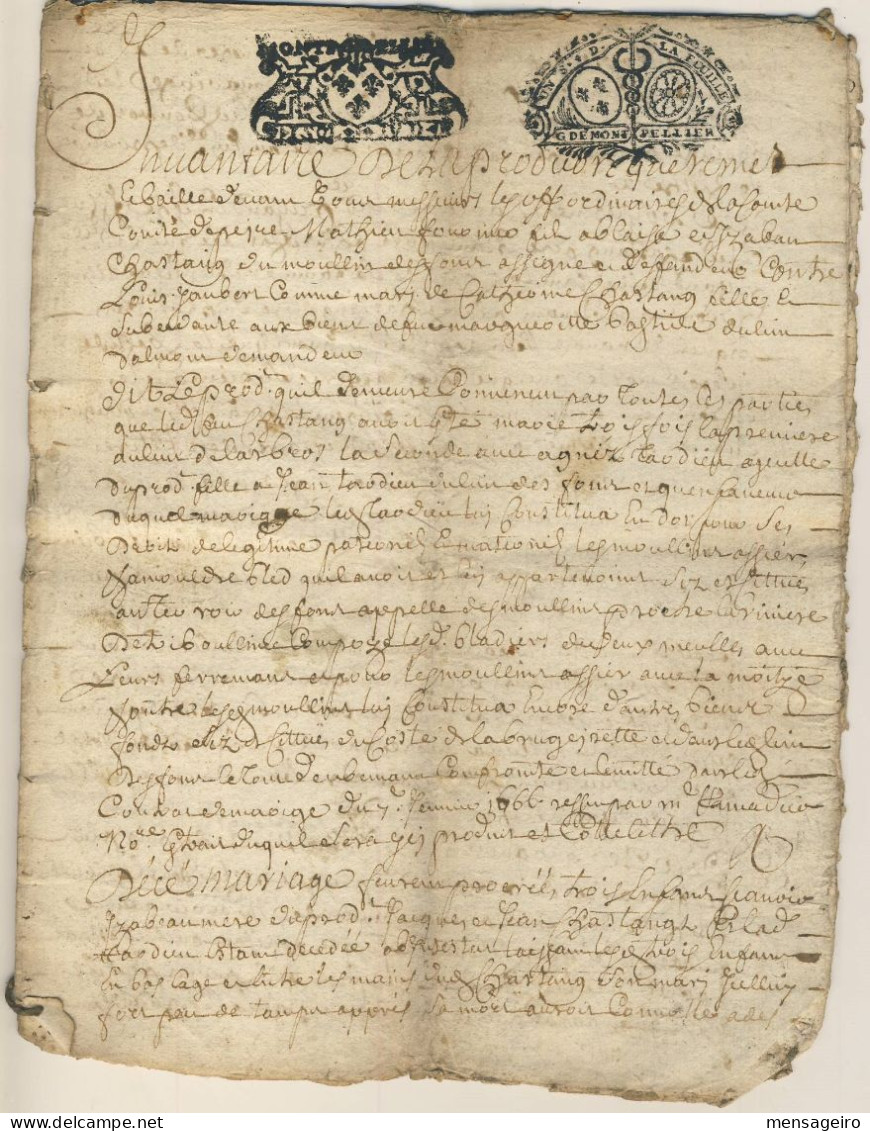 MONTPELLIER
UN S. 4 D. LA FEUILLE
G DE MONTPELLIER
Inuantaire De la production que remet
Et baille deuant vous messieurs les off. ordinaires de la
Comté de peire Mathieu fil a blaise et Izabau
Chastang du moullin des fons assigné et deffendeur Contre
Louis Jaubert Comme mary de Catherine Chastang fille et
aux biens de feue margueritte bastide du lieu
dalmon demandeur
Dit le prod. quil demeure Conueneu par toutes les parties
que led Chastang auoit esté marié trois fois la premiere
au lieu de la seconde auec agnez tardieu ayeulle
du prod. fille a Jean tardieu du lieu des fons et quen faueur
duquel mariage led tardieu lui Constitua En dot pour ses
Droits de legitime paternel Et maternel les moullins assier
a mouldre bled quil auoit et lui appartenoint siz et sittués
au des fons appelle des moullins proche la riuiere
De Compozé les d. bladiers de deux meulles auec
Leurs ferremans et pour les moullins assier auec la moitye
les moullins lui Constitua Encore d'autres biens
fonds siz et sittués du Coste de la brugeirette et dans le lieu
Des fons le tout Confronté et limitté dans led
Contrat de mariage du 7. Januier 1666 par mr
No.re Extrait duquel sera icy produit et Cotte Lettre A
De cé mariage feurent procréés trois Enfans scauoir
Izabeau mere du prod. Jacques et Jean Chastangs Et lad.
tardieu Estant decedée laissant lesd. trois Enfans
En bas eage et Entre les mains dud Chastang son mary Icelluy
fort peu de temps appres sa mort auroit